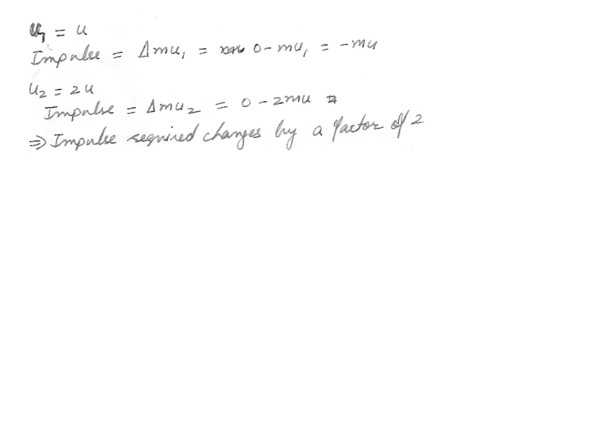 u₁ = u
Impulse = Δmu₁ = 0 - mu₁ = -mu
u₂ = 2u
Impulse = Δmu₂ = 0 - 2mu
⇒ Impulse required changes by a factor of 2